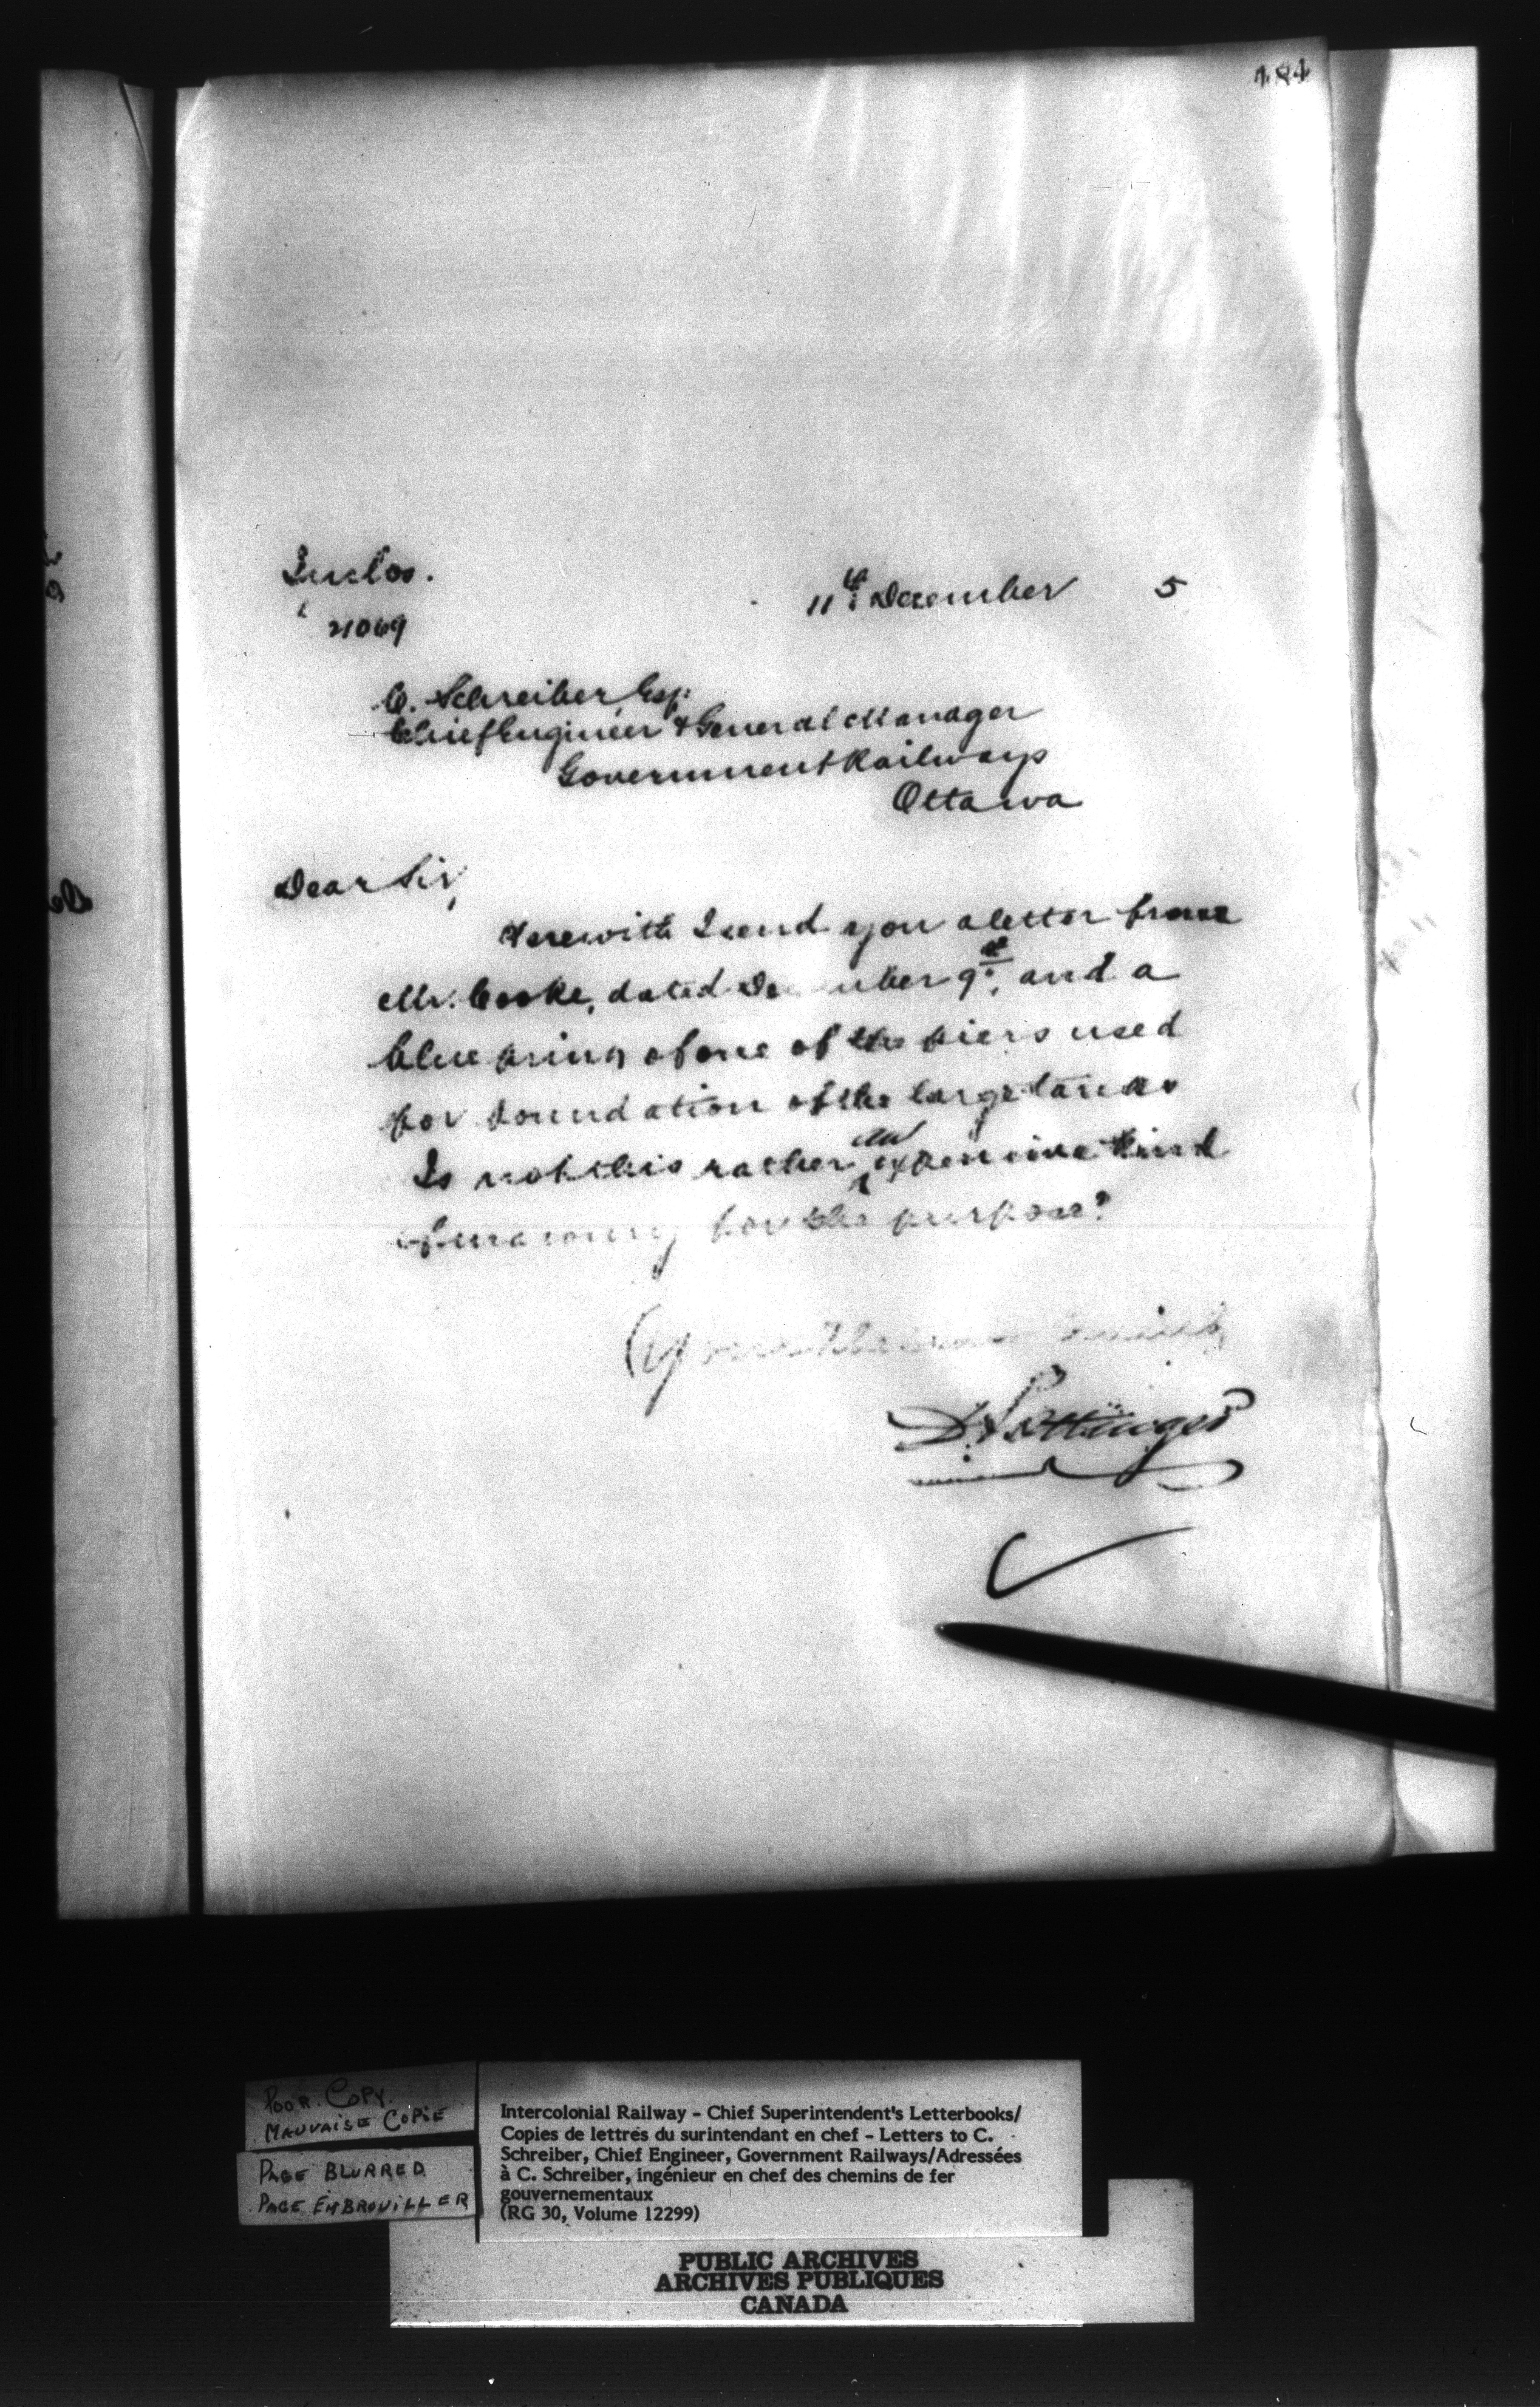 Inclos.
11th December 5
21069
C. Schreiber, Esq.
Chief Engineer & General Manager
Government Railways
Ottawa
Dear Sir,
Herewith I send you a letter from
Mr. Cooke, dated December 9th, and a
blue print of one of the piers used
for foundation of the large tanks
Is not this rather an expensive kind
of masonry for the purpose?
Yours
D. Pottinger
POOR COPY.
MAUVAISE COPIE
PAGE BLURRED
PAGE EMBROUILLER
Intercolonial Railway - Chief Superintendent's Letterbooks/
Copies de lettres du surintendant en chef - Letters to C.
Schreiber, Chief Engineer, Government Railways/Adressées
à C. Schreiber, ingénieur en chef des chemins de fer
gouvernementaux
(RG 30, Volume 12299)
PUBLIC ARCHIVES
ARCHIVES PUBLIQUES
CANADA